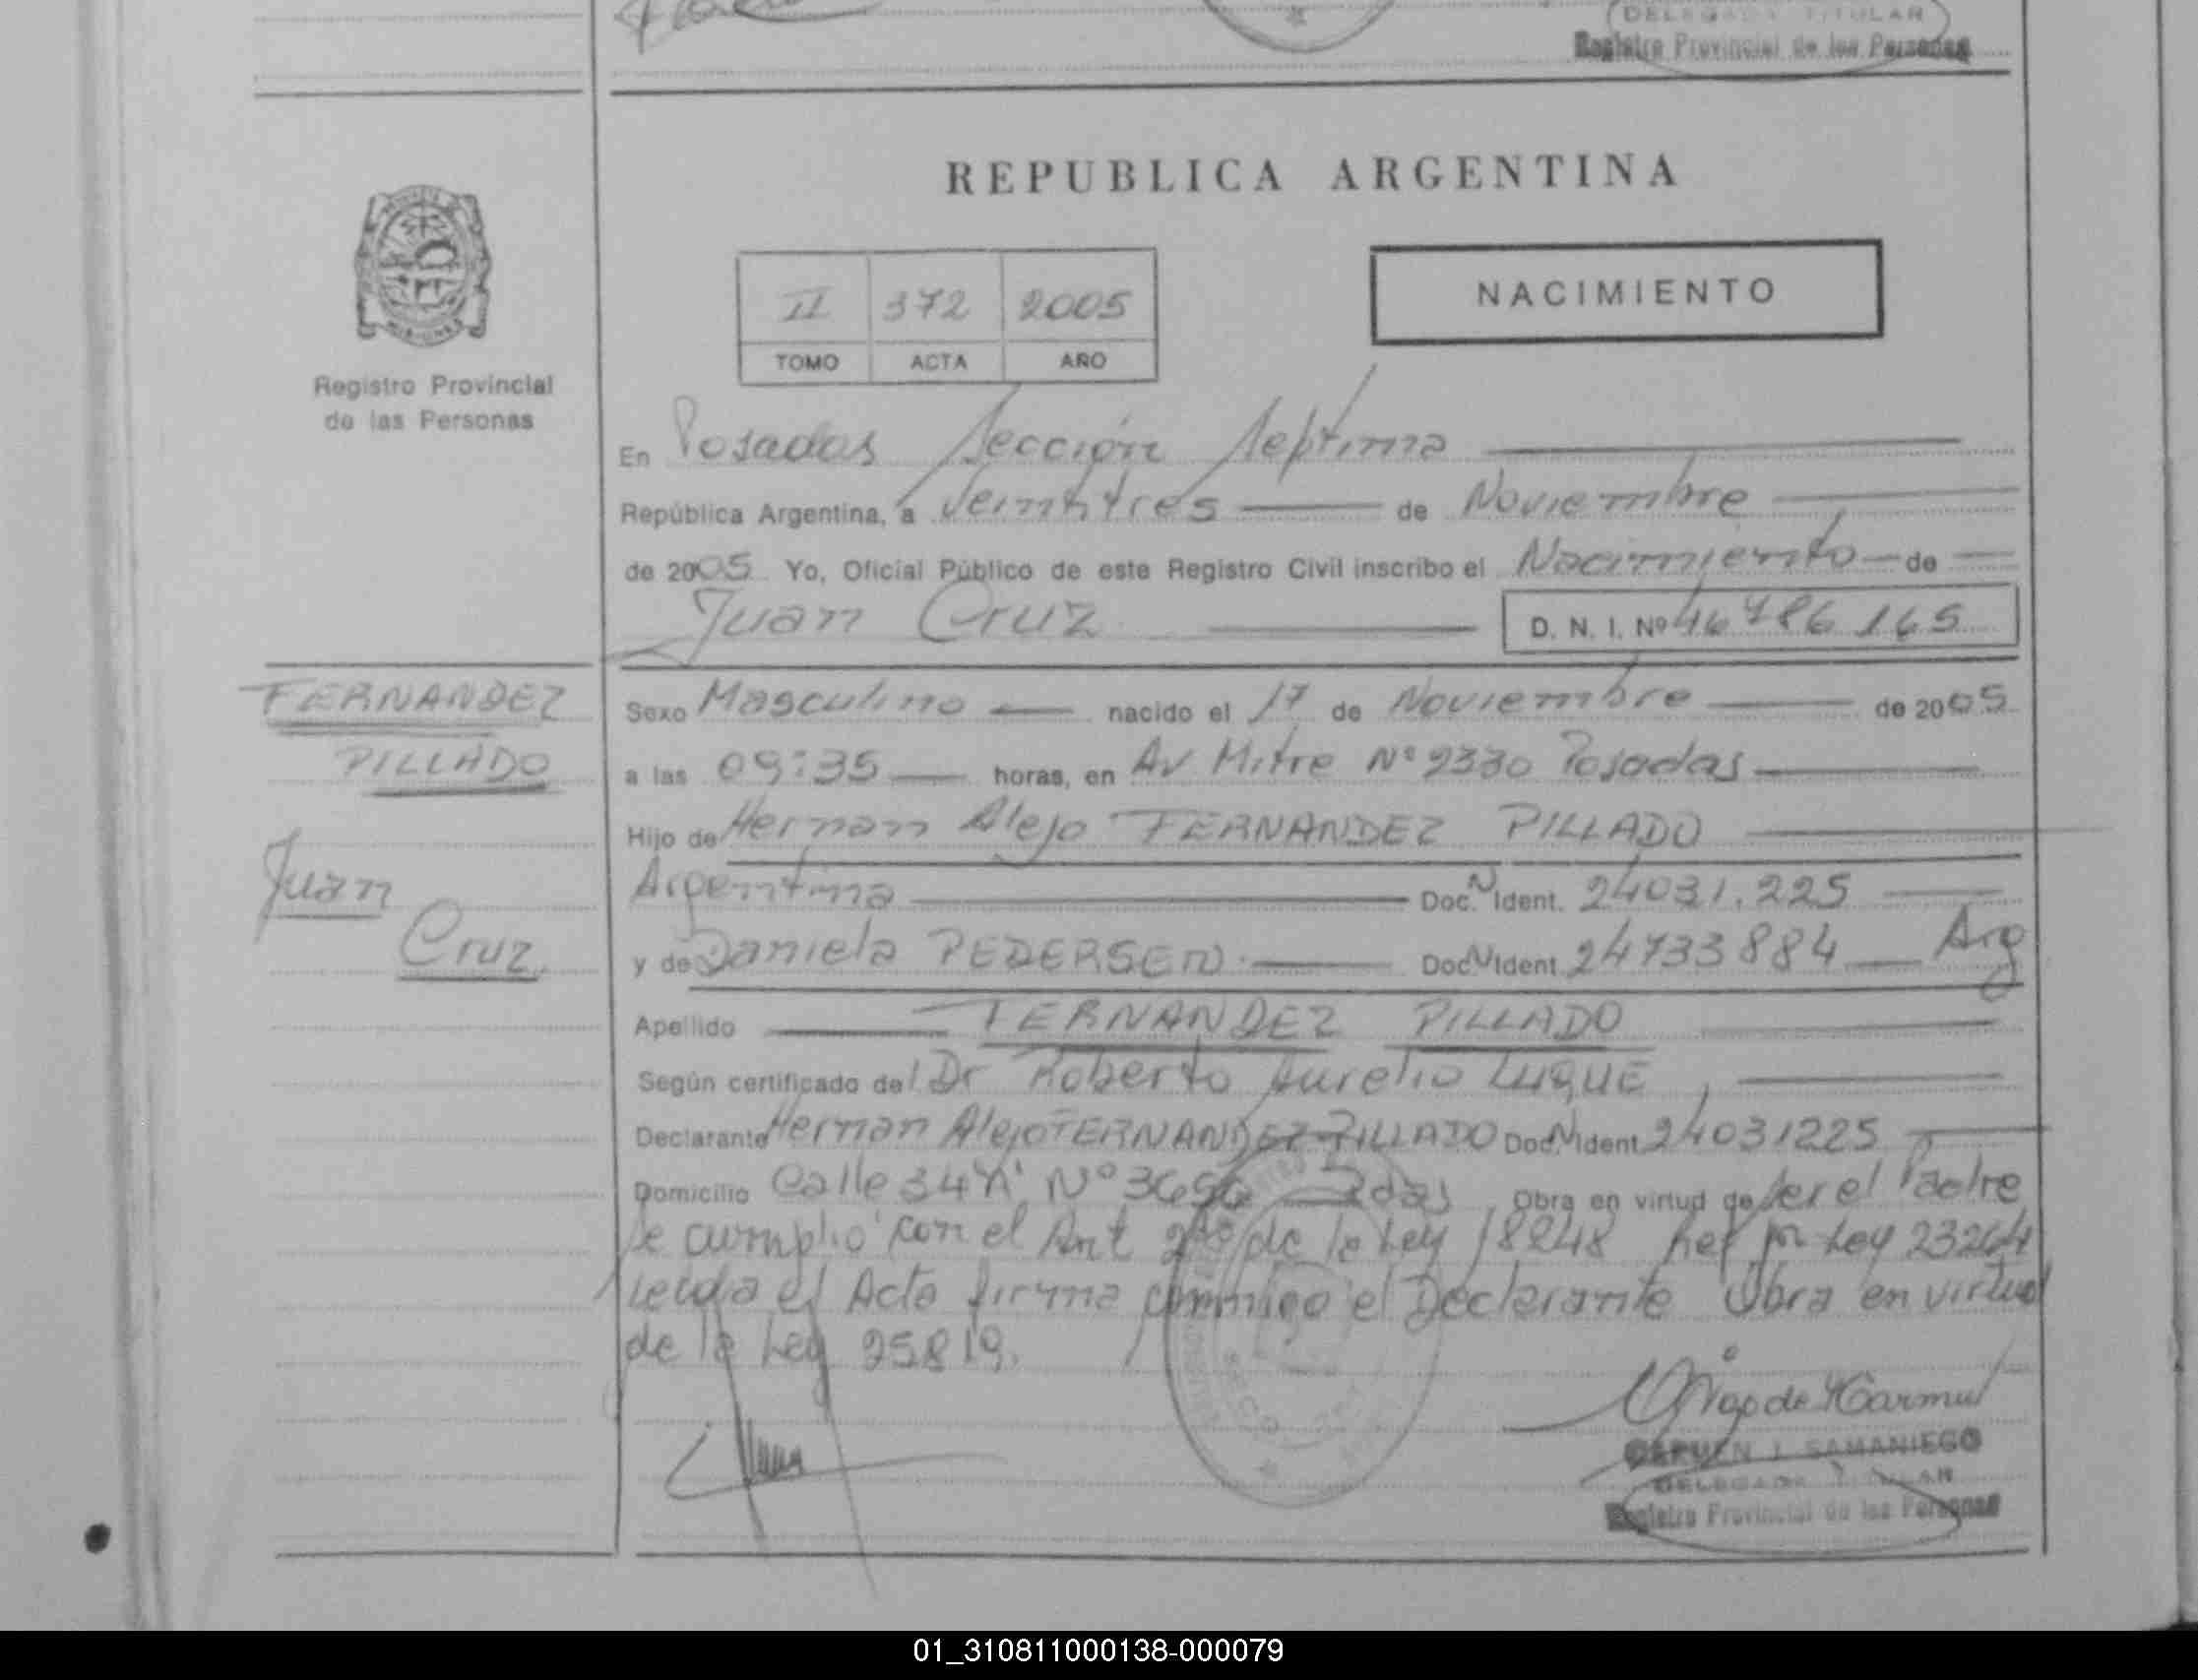 DELEGADA TITULAR
Registro Provincial de las Personas
REPUBLICA ARGENTINA
NACIMIENTO
II 372 2005
TOMO ACTA AÑO
Registro Provincial
de las Personas
En Posadas Sección Septima
República Argentina, a Veintitres de Noviembre
de 2005 Yo, Oficial Público de este Registro Civil inscribo el Nacimiento de
Juan Cruz D. N. I. Nº 46786165
FERNANDEZ
PILLADO
Juan
Cruz
Sexo Masculino nacido el 17 de Noviembre de 2005
a las 09:35 horas, en Av Mitre Nº 2330 Posadas
Hijo de Hernan Alejo FERNANDEZ PILLADO
Argentina Doc. N Ident. 24031.225
y de Daniela PEDERSEN Doc N Ident 24733884 Arg
Apellido FERNANDEZ PILLADO
Según certificado del Dr Roberto Aurelio LUQUE
Declarante Hernan Alejo FERNANDEZ PILLADO Doc N Ident 24031225
Domicilio Calle 34 Nº Pdas Obra en virtud de ser el Padre
Se cumplio con el Art 2do de la Ley 18248 por Ley 23264
Leida el Acta firma conmigo el Declarante Obra en virtud
de la Ley 25819.
CARMEN I. SAMANIEGO
DELEGADA TITULAR
Registro Provincial de las Personas
01_310811000138-000079